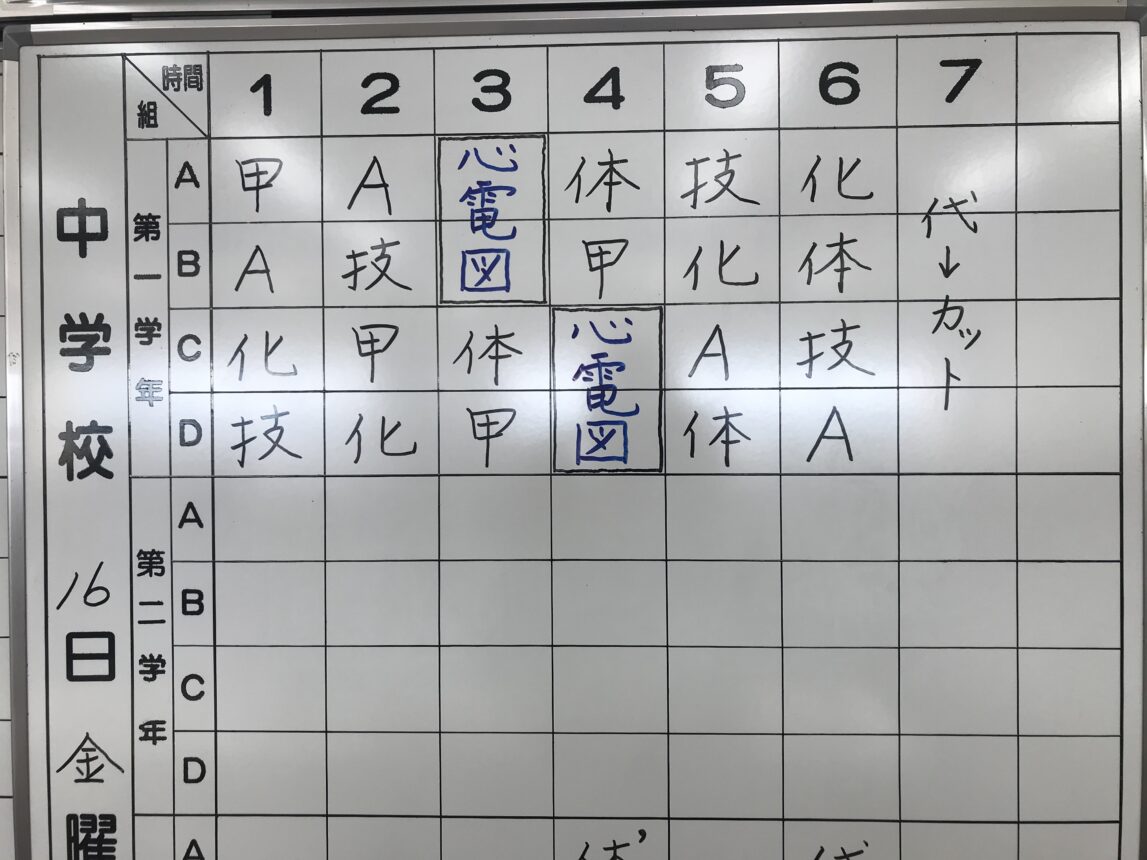 時間 1 2 3 4 5 6 7
組
中学校 16日 金曜
第一学年
A 甲 A 心電図 体 技 化
B A 技 甲 化 体
C 化 甲 体 心電図 A 技
D 技 化 甲 体 A
代→カット
第二学年
A
B
C
D
A